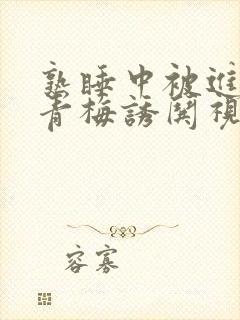 熟睡中被進
青梅誘関視
容寡